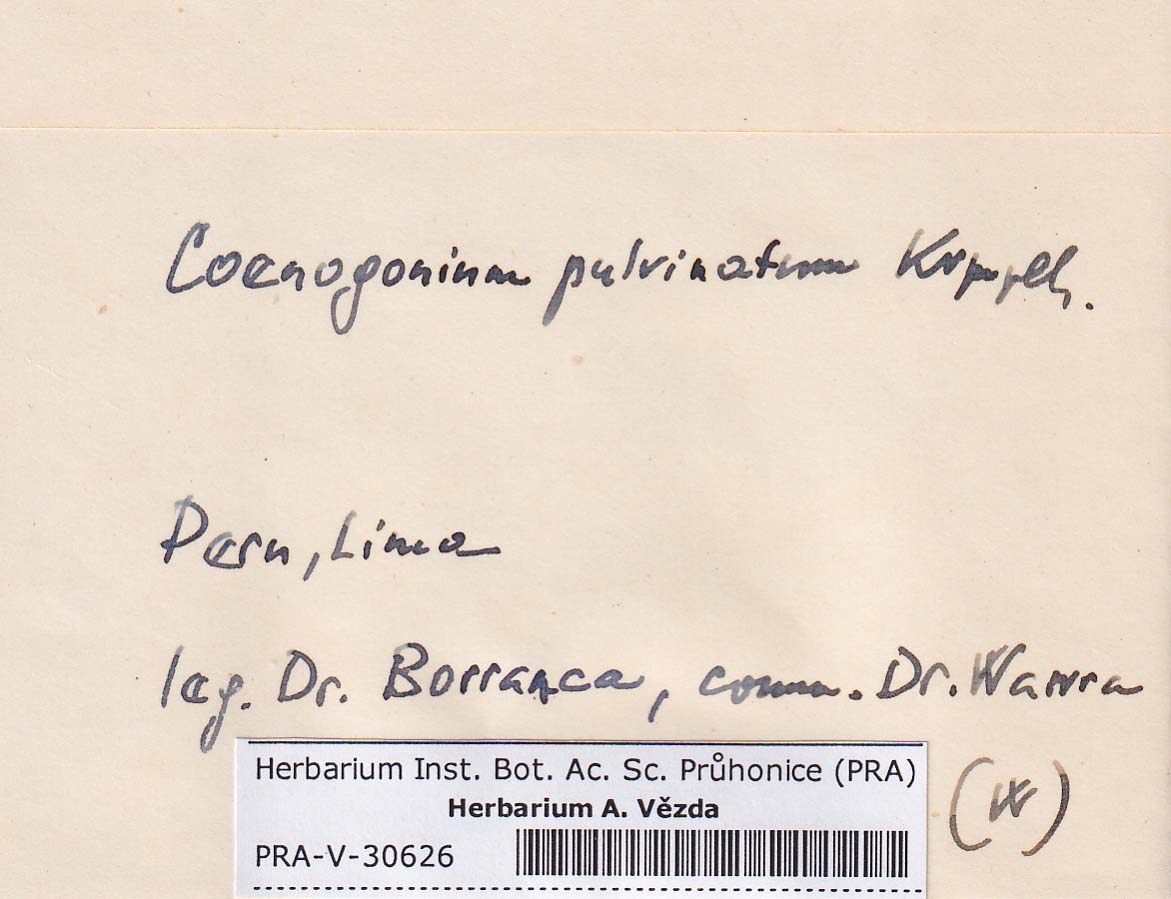 Coenogonium pulvinatum Krmplh.
Peru, Lima
leg. Dr. Borranca, comm. Dr. Wawra
(W)
Herbarium Inst. Bot. Ac. Sc. Průhonice (PRA)
Herbarium A. Vězda
PRA-V-30626